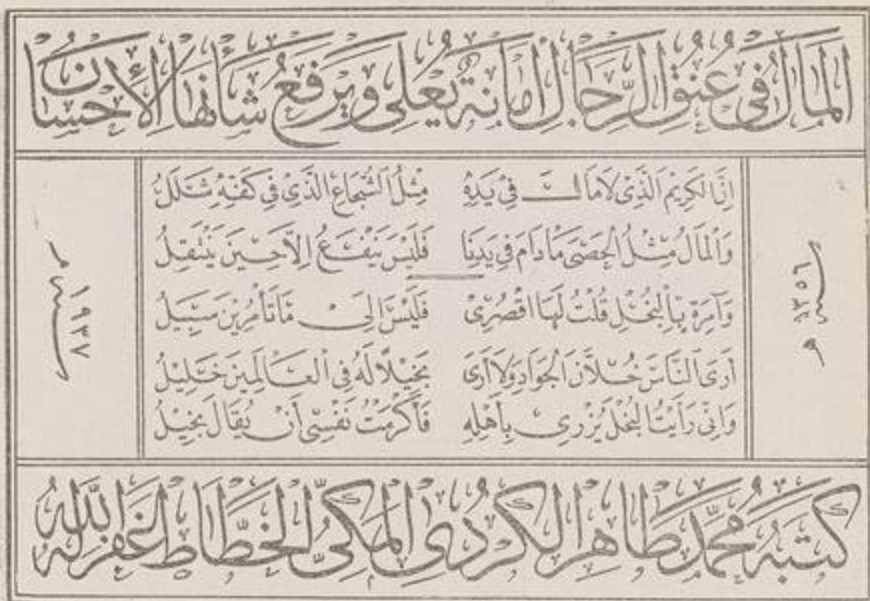 المَالُ فِي عُنُقِ الرِّجَالِ أَمَانَةٌ يُعْلِي وَيَرْفَعُ شَأْنَهَا الإِحْسَانُ
إِنَّ الكَرِيمَ الَّذِي لَا مَالَ فِي يَدِهِ مِثْلُ الشُّجَاعِ الَّذِي فِي كَفِّهِ شَلَلُ
وَالمَالُ مِثْلُ الحَصَى مَا دَامَ فِي يَدِنَا فَلَيْسَ يَنْفَعُ إِلاَّ حِينَ يَنْتَقِلُ
وَآمِرَةٍ بِالبُخْلِ قُلْتُ لَهَا اقْصُرِي فَلَيْسَ إِلَى مَا تَأْمُرِينَ سَبِيلُ
أَرَى النَّاسَ خُلاَّنَ الجَوَادِ وَلَا أَرَى بَخِيلاً لَهُ فِي العَالَمِينَ خَلِيلُ
وَإِنِّي رَأَيْتُ البُخْلَ يُزْرِي بِأَهْلِهِ فَأَكْرَمْتُ نَفْسِي أَنْ يُقَالَ بَخِيلُ
سنة ١٣٥٦ هـ
سنة ١٩٣٧ م
كَتَبَهُ مُحَمَّد طَاهِر الكُرْدِي المَكِّيُّ الخَطَّاطُ غَفَرَ اللهُ لَهُ